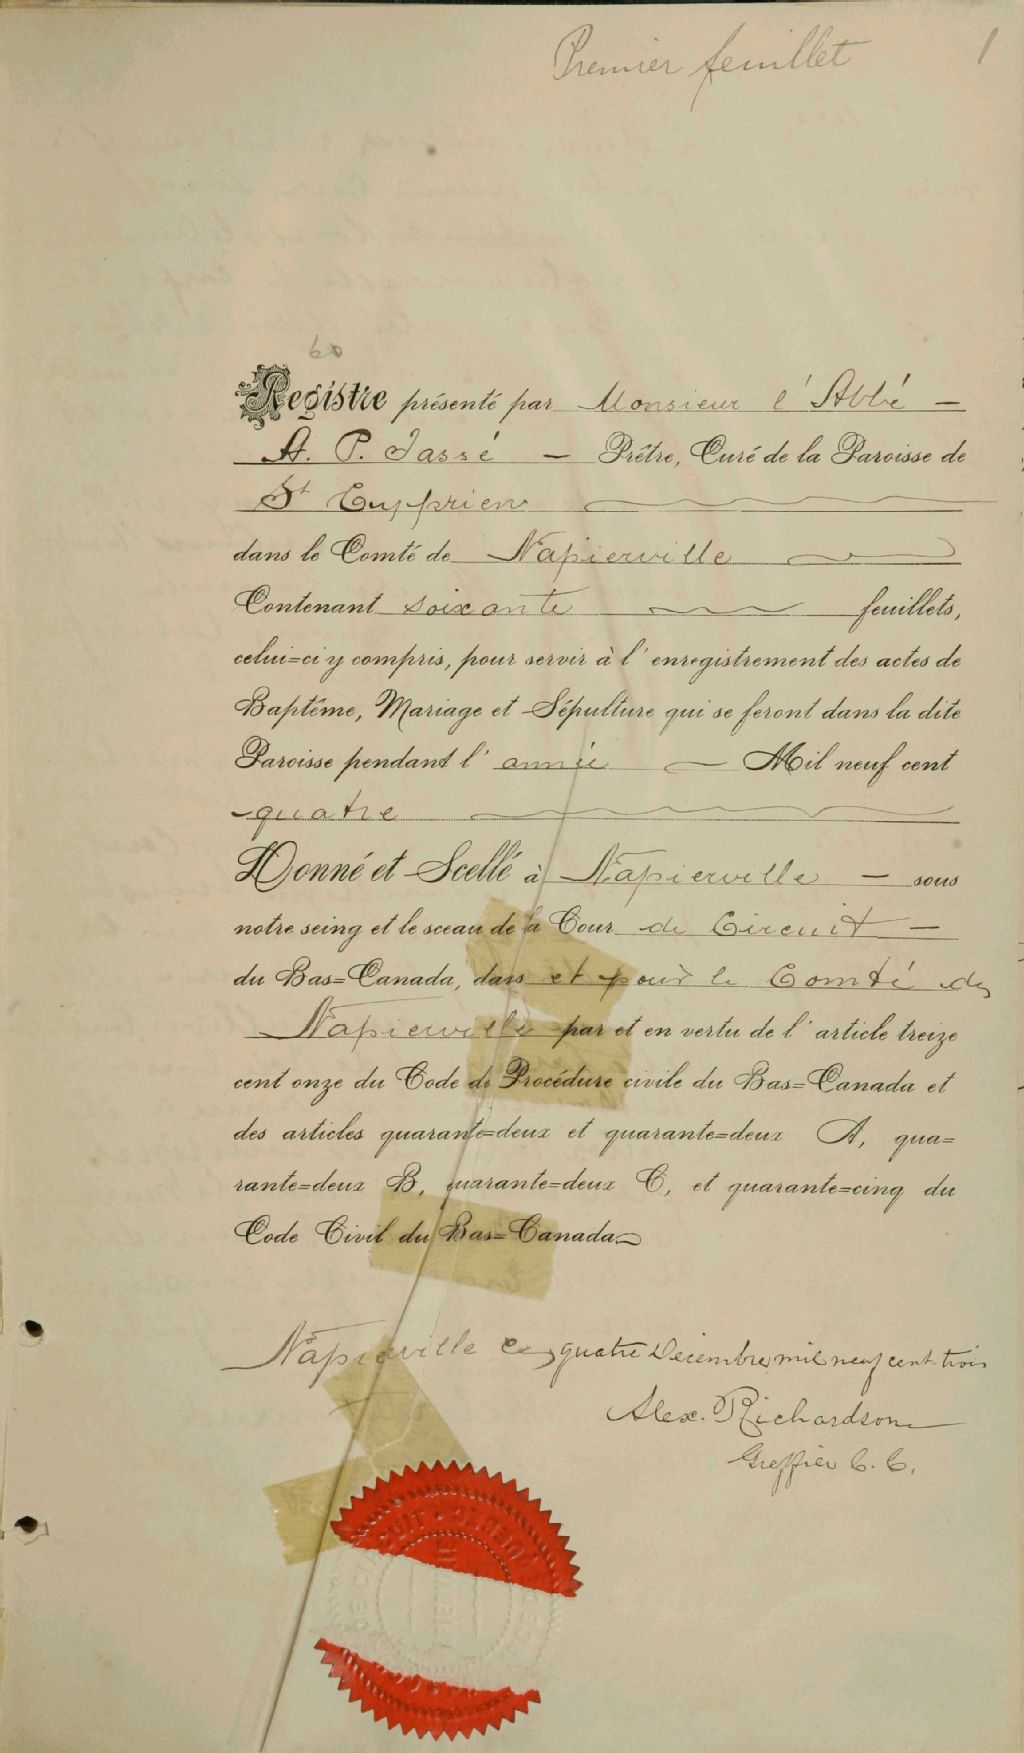 Premier feuillet 1
60
Registre présenté par Monsieur l'Abbé
A. P. Tassé Prêtre, Curé de la Paroisse de
St Cyprien
dans le Comté de Napierville
Contenant soixante feuillets,
celui-ci y compris, pour servir à l'enregistrement des actes de
Baptême, Mariage et Sépulture qui se feront dans la dite
Paroisse pendant l'année Mil neuf cent
quatre
Donné et Scellé à Napierville sous
notre seing et le sceau de la Cour de Circuit
du Bas=Canada, dans et pour le Comté de
Napierville par et en vertu de l'article treize
cent onze du Code de Procédure civile du Bas=Canada et
des articles quarante=deux et quarante=deux A, qua=
rante=deux B, quarante=deux C, et quarante=cinq du
Code Civil du Bas=Canada
Napierville ce quatre Décembre mil neuf cent trois
Alex. Richardson
Greffier C. C.